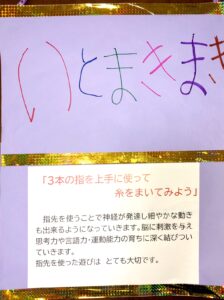 いとまきまき
「3本の指を上手に使って
糸をまいてみよう」
指先を使うことで神経が発達し細やかな動き
も出来るようになっていきます。脳に刺激を与え
思考力や言語力・運動能力の育ちに深く結びつい
ていきます。
指先を使った遊びは とても大切です。